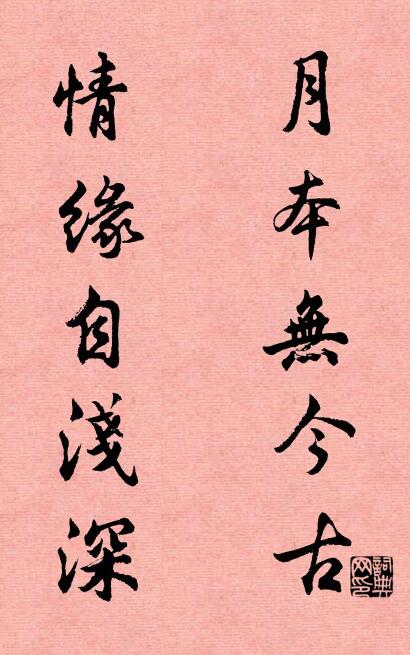 月本無今古
情緣自淺深
詞典网印